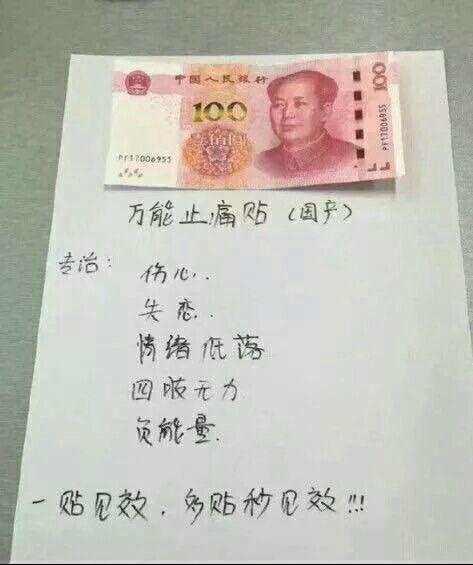 中国人民银行
100
100
PF17006955
PF17006955
万能止痛贴（国产）
专治：
伤心..
失恋..
情绪低落
四肢无力
负能量.
一贴见效，多贴秒见效!!!